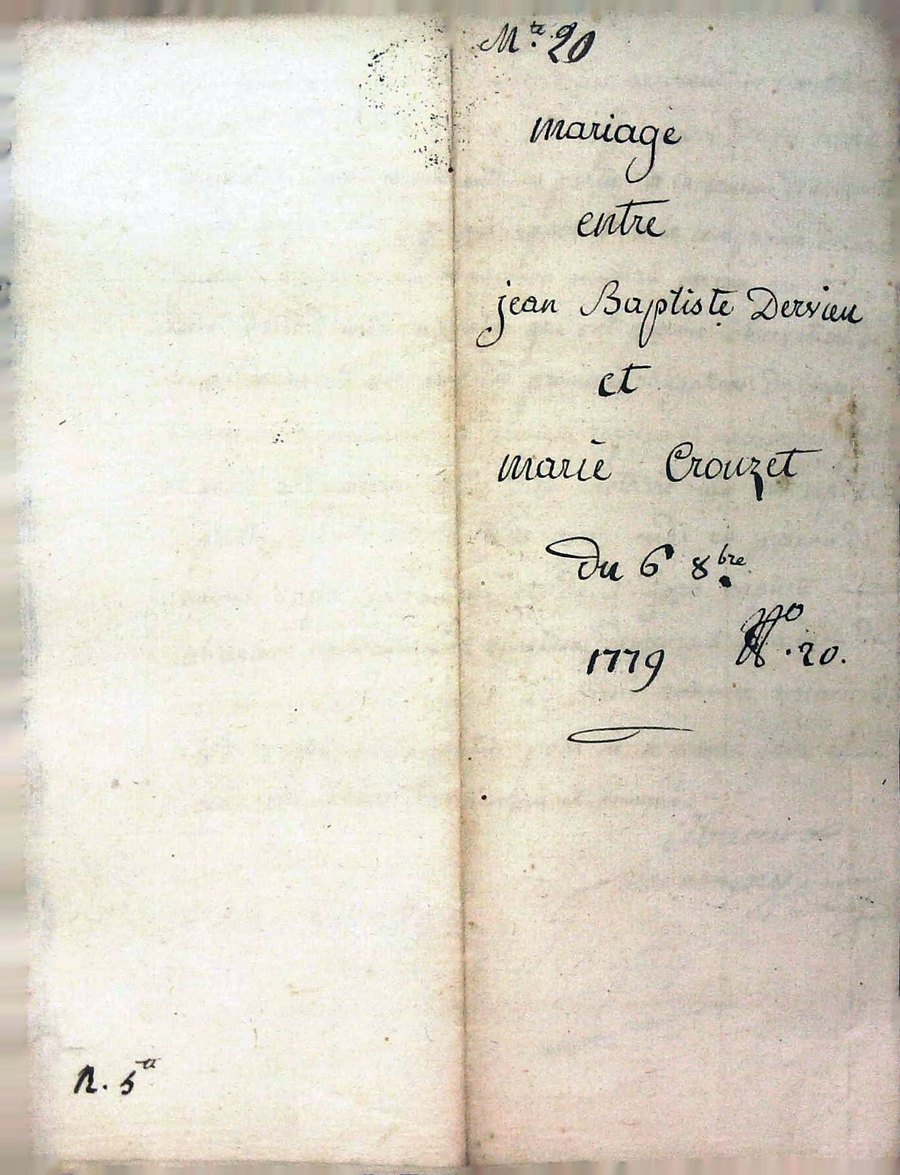 Mte. 20
mariage
entre
jean Baptiste Dervieu
et
marie Crouzet
Du 6 8bre.
1779 No. 20.
R. 5tt